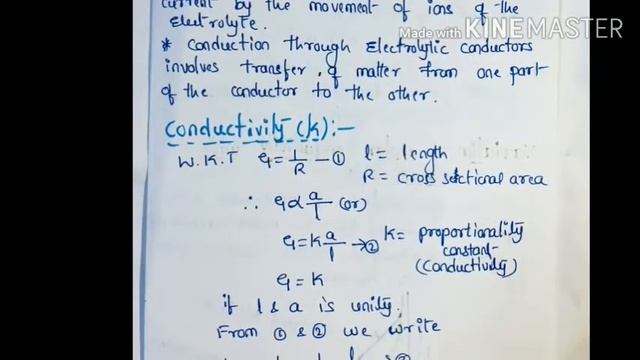 current by the movement of ions of the
Electrolyte.
Made with KINEMASTER
* conduction through Electrolytic conductors
involves transfer of matter from one part
of the conductor to the other.
Conductivity (k):-
W.K.T G = 1/R - ① l = length
R = cross sectional area
∴ G α a/l (or)
G = K a/l → ② K = proportionality
constant
(conductivity)
G = K
if l & a is unity.
From ① & ② we write